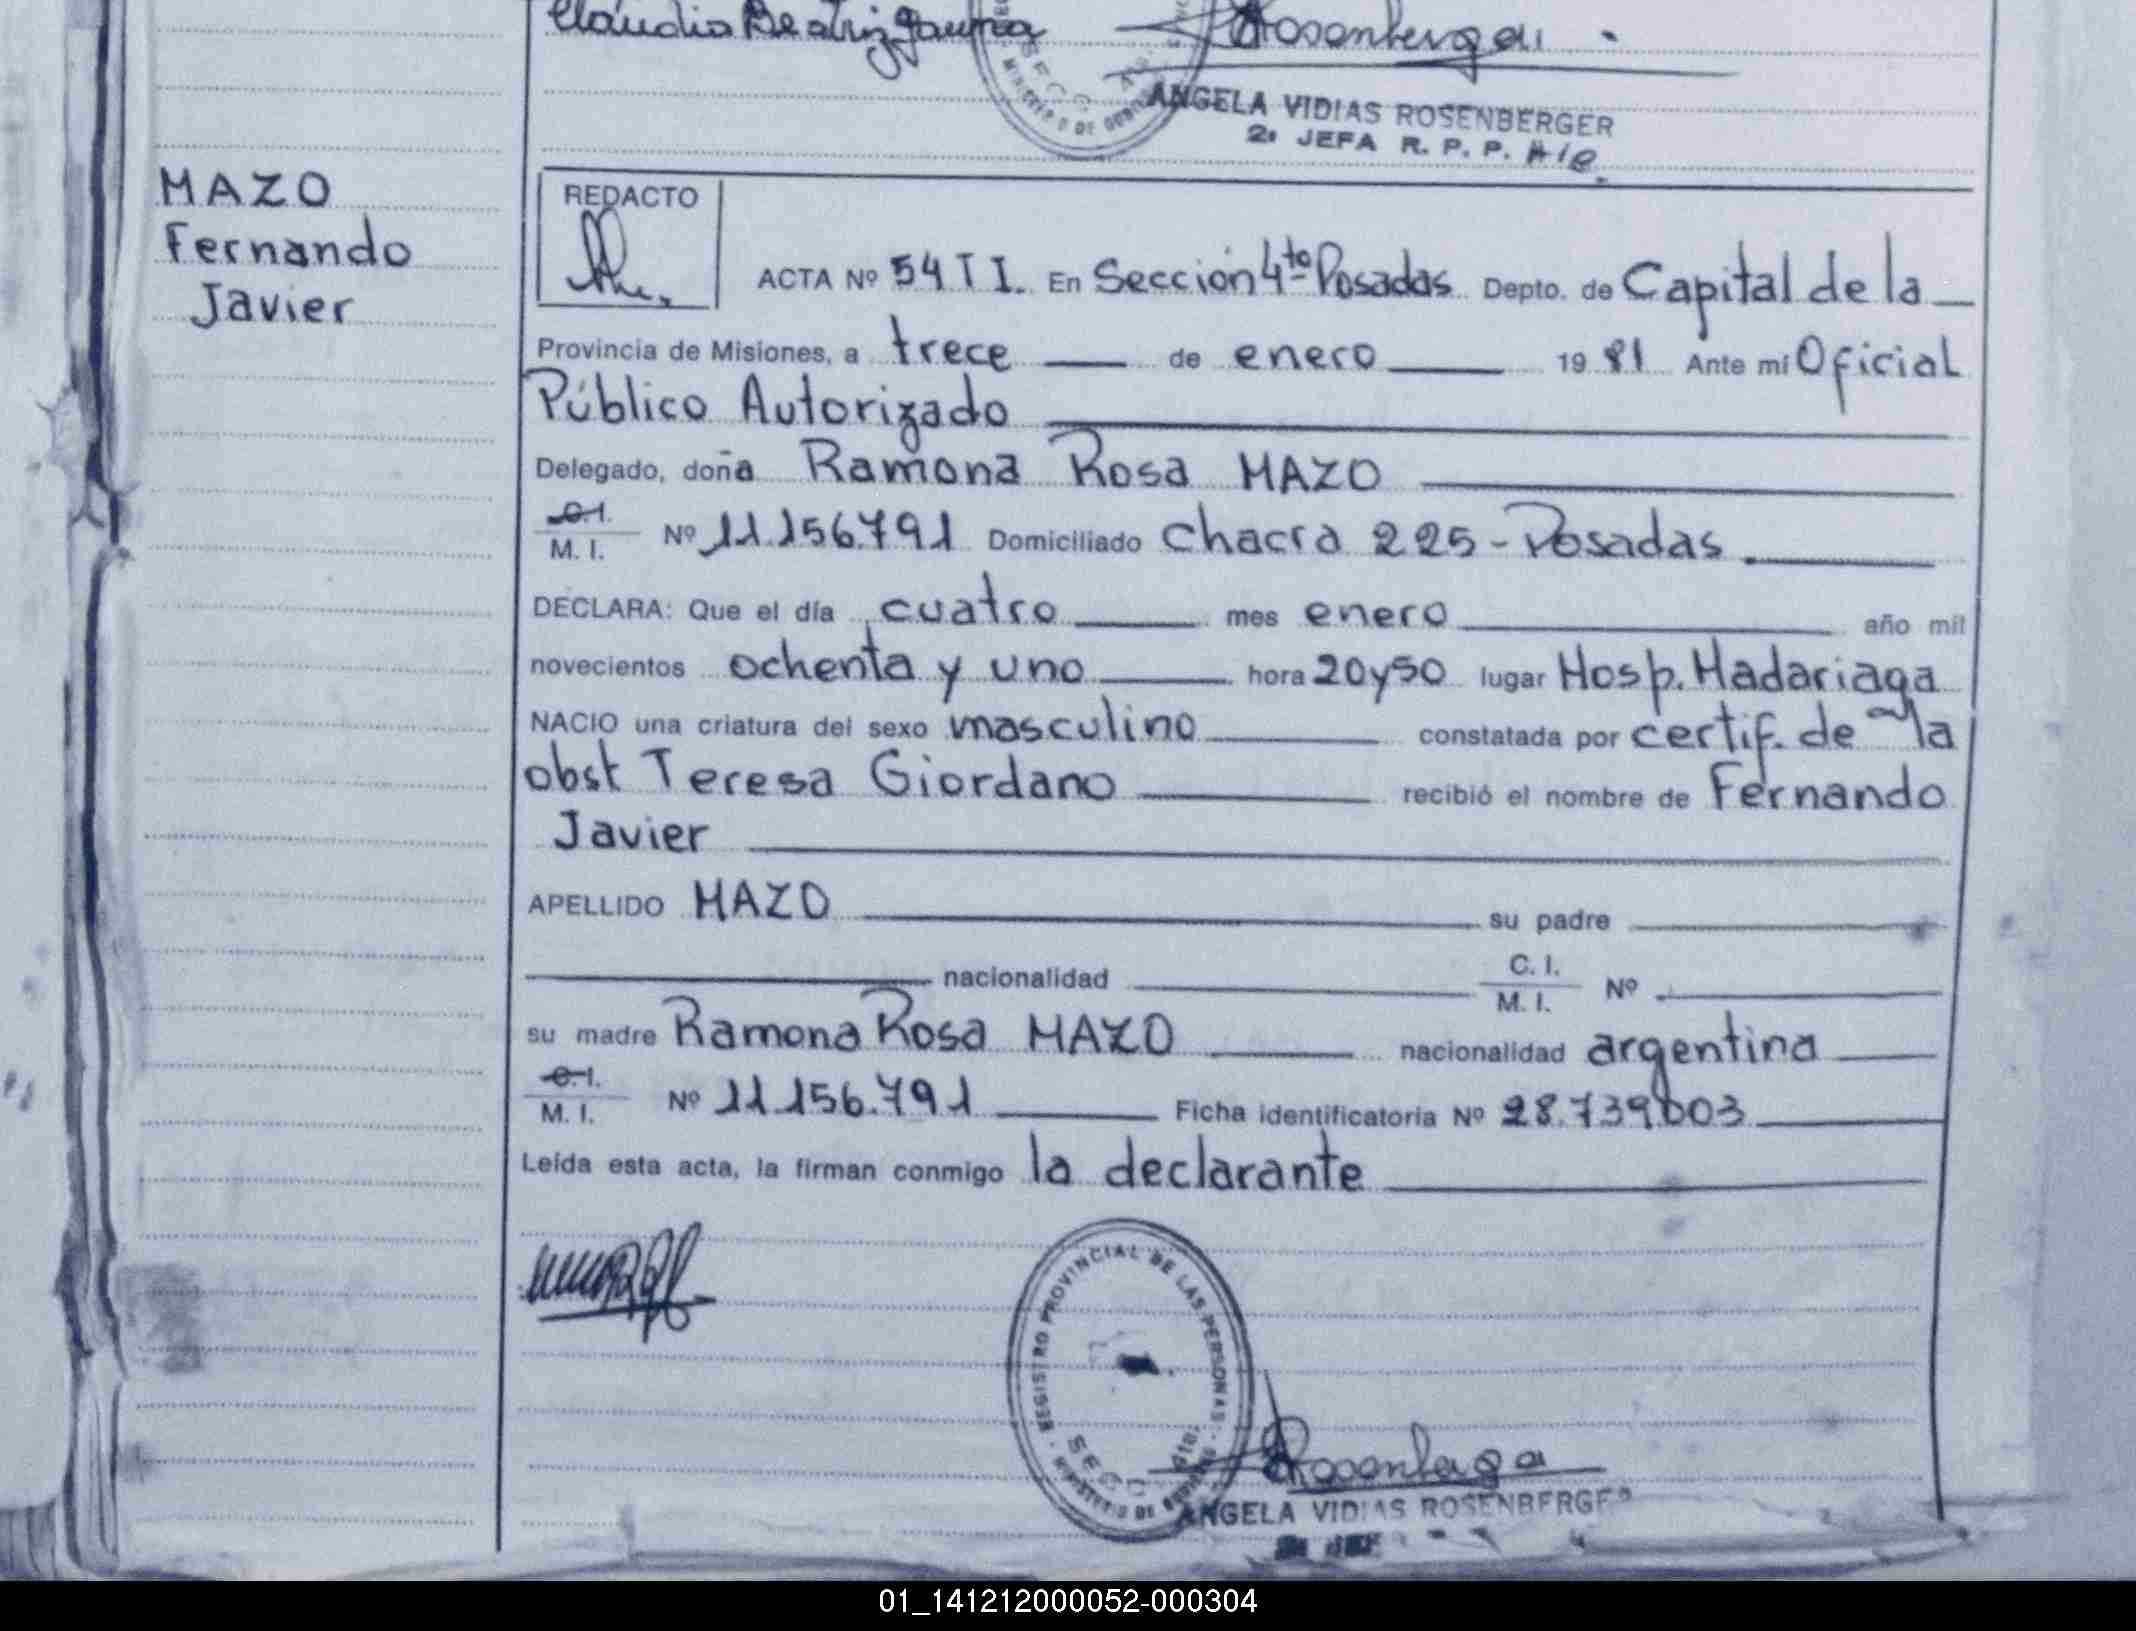 Claudia Beatriz Gauna
Rosenberger
ANGELA VIDIAS ROSENBERGER
2a JEFA R. P. P. A/C.
MAZO
Fernando
Javier
REDACTO
ACTA Nº 54 T I. En Sección 4ta Posadas Depto. de Capital de la
Provincia de Misiones, a trece de enero 19 81 Ante mí Oficial
Público Autorizado
Delegado, doña Ramona Rosa MAZO
C. I.
M. I. Nº 11.156.791 Domiciliado Chacra 225 - Posadas
DECLARA: Que el día cuatro mes enero año mil
novecientos ochenta y uno hora 20 y 50 lugar Hosp. Madariaga
NACIO una criatura del sexo masculino constatada por certif. de la
obst Teresa Giordano recibió el nombre de Fernando
Javier
APELLIDO MAZO su padre
nacionalidad C. I.
M. I. Nº
su madre Ramona Rosa MAZO nacionalidad argentina
C. I.
M. I. Nº 11.156.791 Ficha identificatoria Nº 28.739.003
Leída esta acta, la firman conmigo la declarante
REGISTRO PROVINCIAL DE LAS PERSONAS
SECC. 4ta.
MINISTERIO DE GOBIERNO
Rosenberger
ANGELA VIDIAS ROSENBERGER
01_141212000052-000304